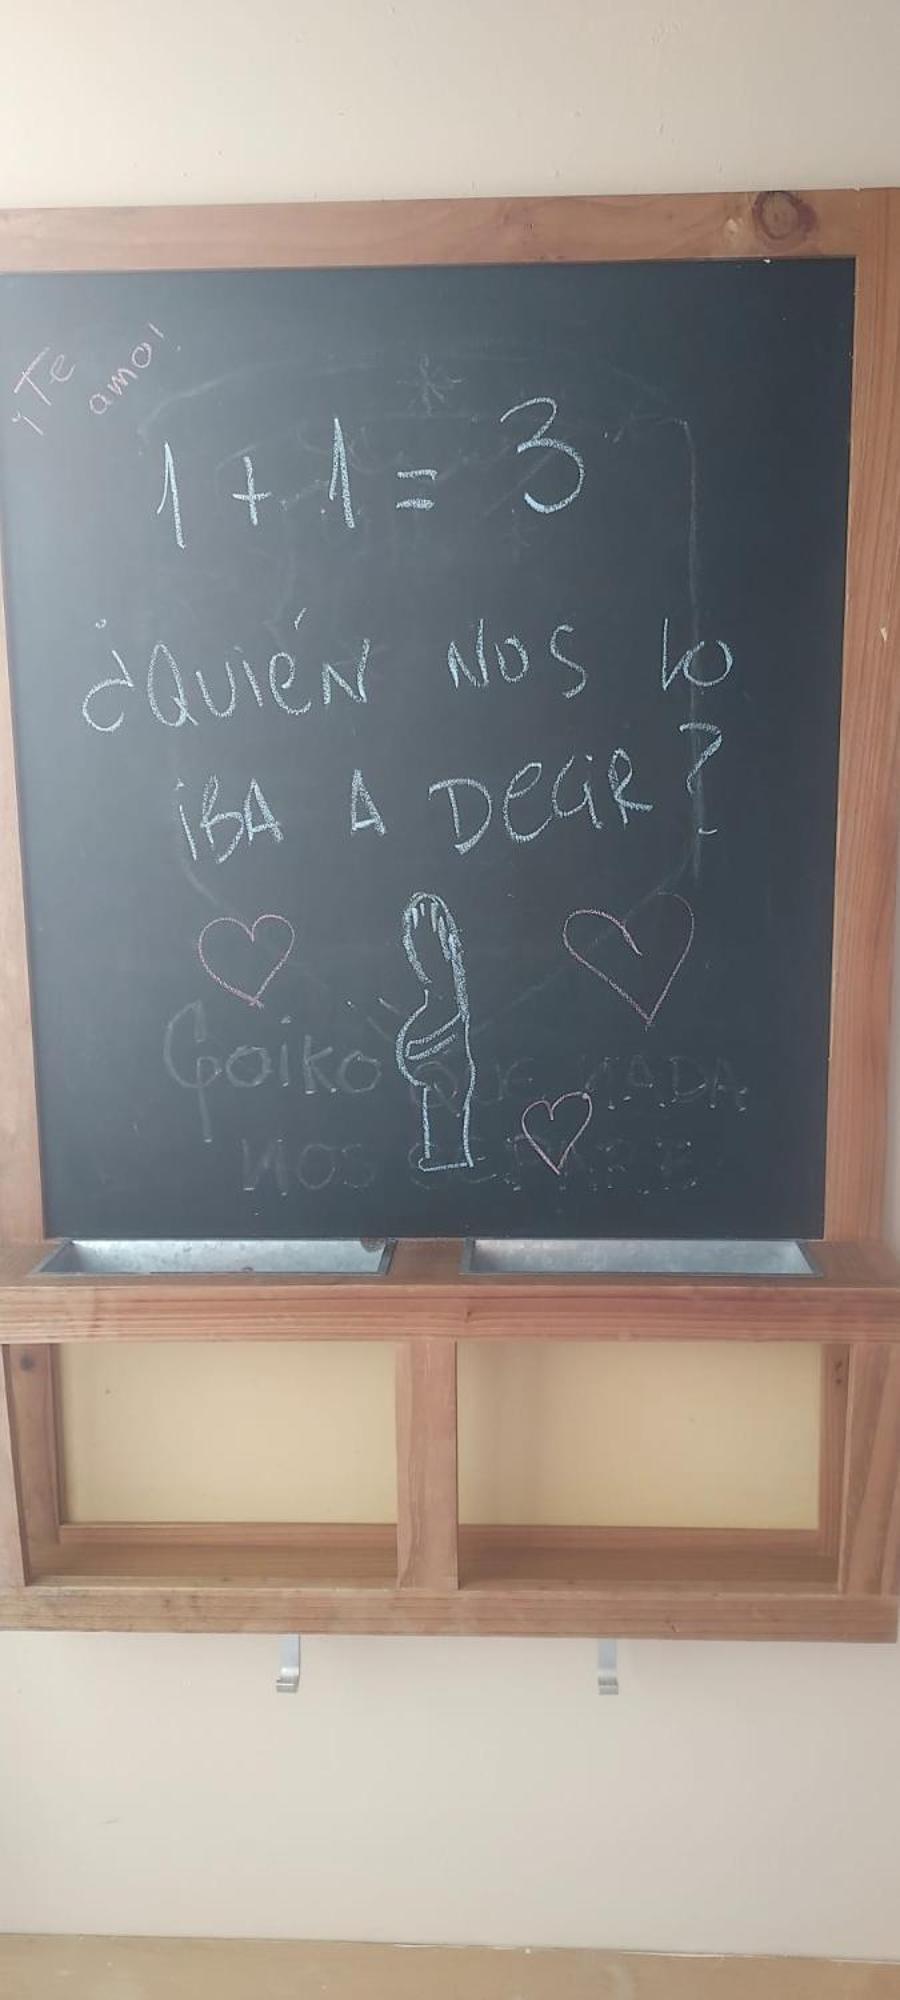 ¡Te amo!
1 + 1 = 3
¿QUIÉN NOS LO
iBA A DECIR?
Goiko QUE NADA
NOS SEPARE